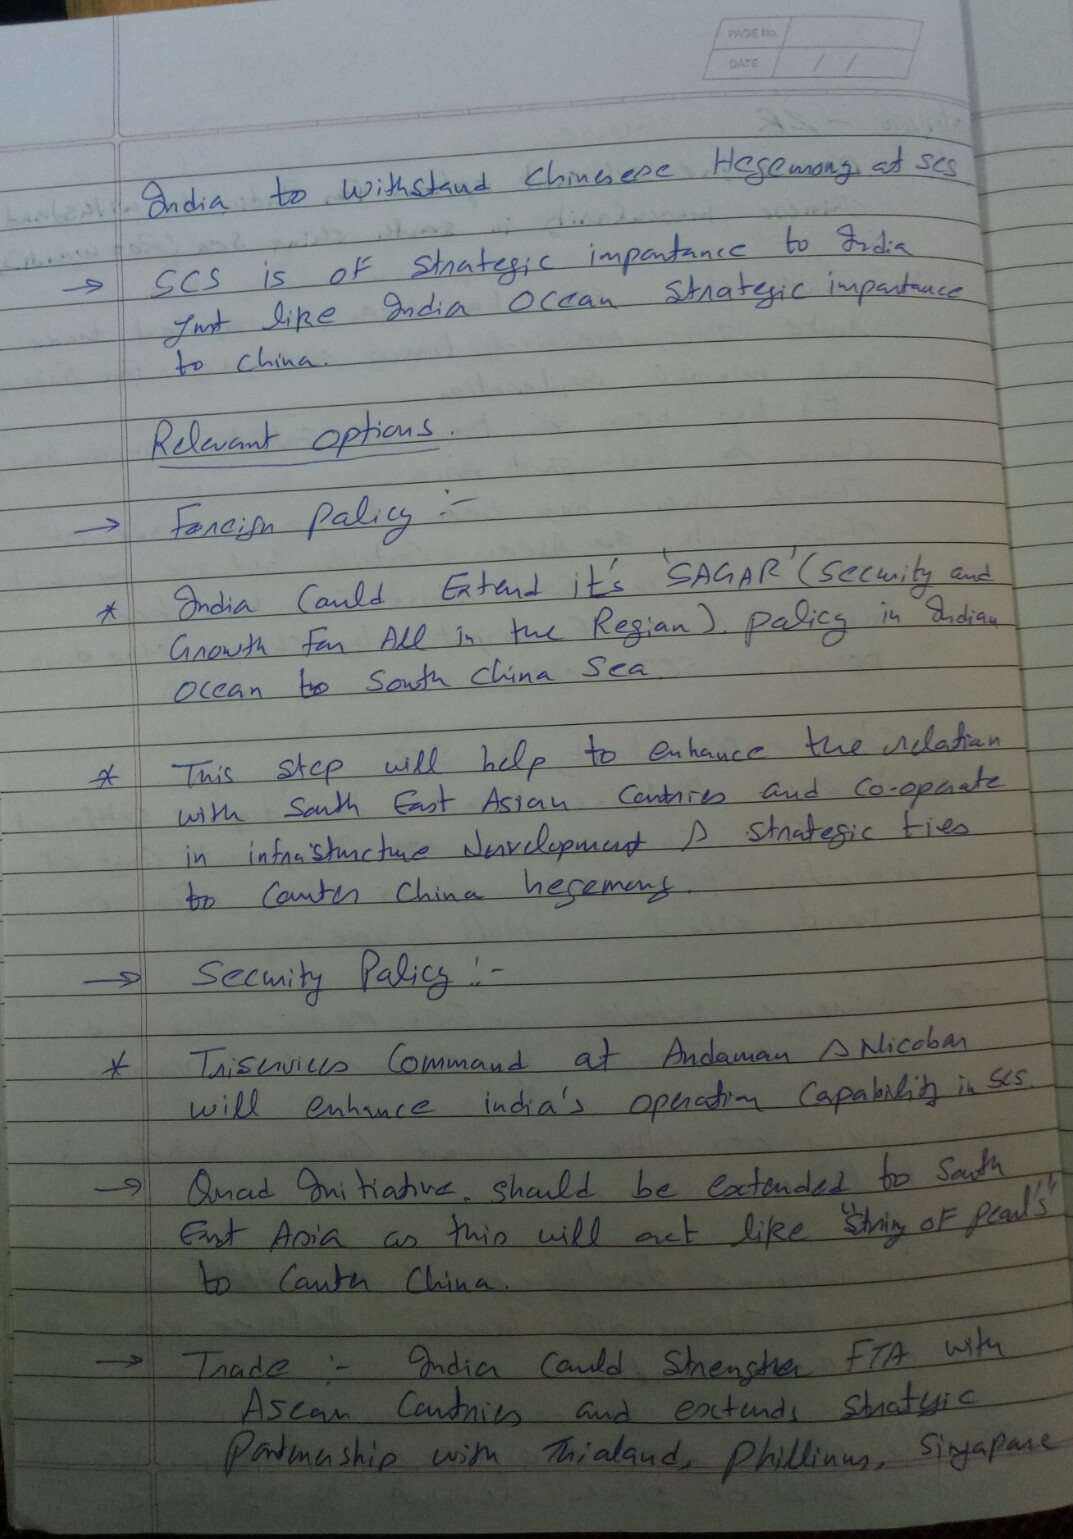 PAGE No.
DATE / /
India to withstand Chinesese Hegemony at SCS
→ SCS is of strategic importance to India
Just like India Ocean strategic importance
to China.
Relevant options.
→ Foreign Policy :-
* India Could Extend it's 'SAGAR' (Security and
Growth For All in the Region). policy in Indian
Ocean to South China Sea
* This step will help to enhance the relation
with South East Asian Contries and Co-operate
in infrasturcture Development & strategic ties
to Counter China hegemony.
→ Security Policy :-
* Triservices Command at Andaman & Nicobar
will enhance india's operation Capability in SCS.
→ Quad Initiative. should be extended to South
East Asia as this will act like "String of Pearl's"
to Counter China.
→ Trade :- India Could Strengthen FTA with
Asean Contries and extends strategic
Partnership with Thialand, Phillines, Singapore